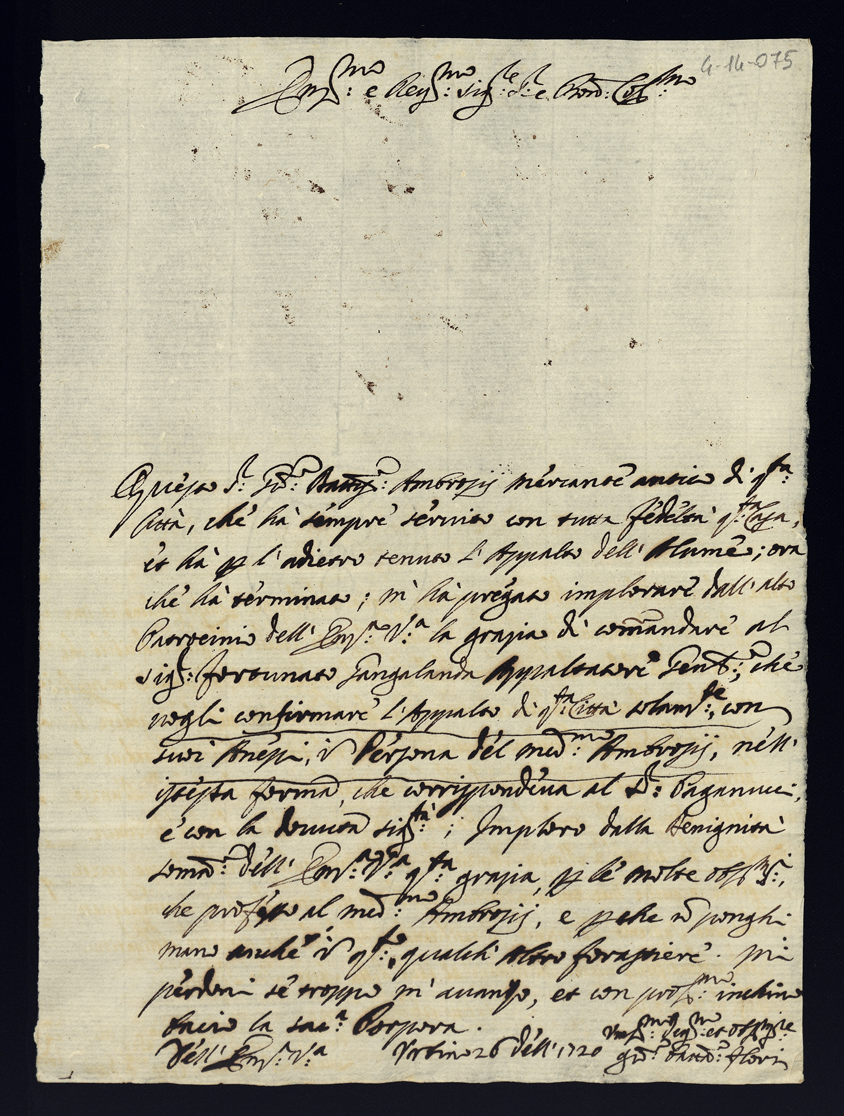 4-14-075
Em.mo e Rev.mo Sig.re S.r e Pron. Coll.mo
Questo S.r Gio: Batt.a: Ambrosij mercante antico di q.ta
Città, che hà sempre servito con tutta fedeltà q.ta Casa,
et hà p l'adietro tenuto l'Appalto dell'Alume; ora
che hà terminato; m'hà pregato implorare dall'alto
Patrocinio dell'Em.a V.a la grazia di comandare al
Sig.r Fortunato Gangalanda Appaltatore Gen.le; che
vogli confirmare l'Appalto di q.ta Città solam.te, con
suoi Anessi, in Persona del med.mo Ambrosij, nell'
istessa forma, che corrispondeva al S.r Paganucci,
e con la dovuta sig.tà; Imploro dalla benignità
soma dell'Em.a V.a q.ta grazia, p le molte
che professo al med.mo Ambrosij, e pche n ponghi
mano anche in q.to, qualche altro forastiere. mi
perdoni se troppo m'avanzo, et con prof.mo inchino
bacio la sac.a Porpora.
Dell'Em.a V.a Urbino 26 dell 1720